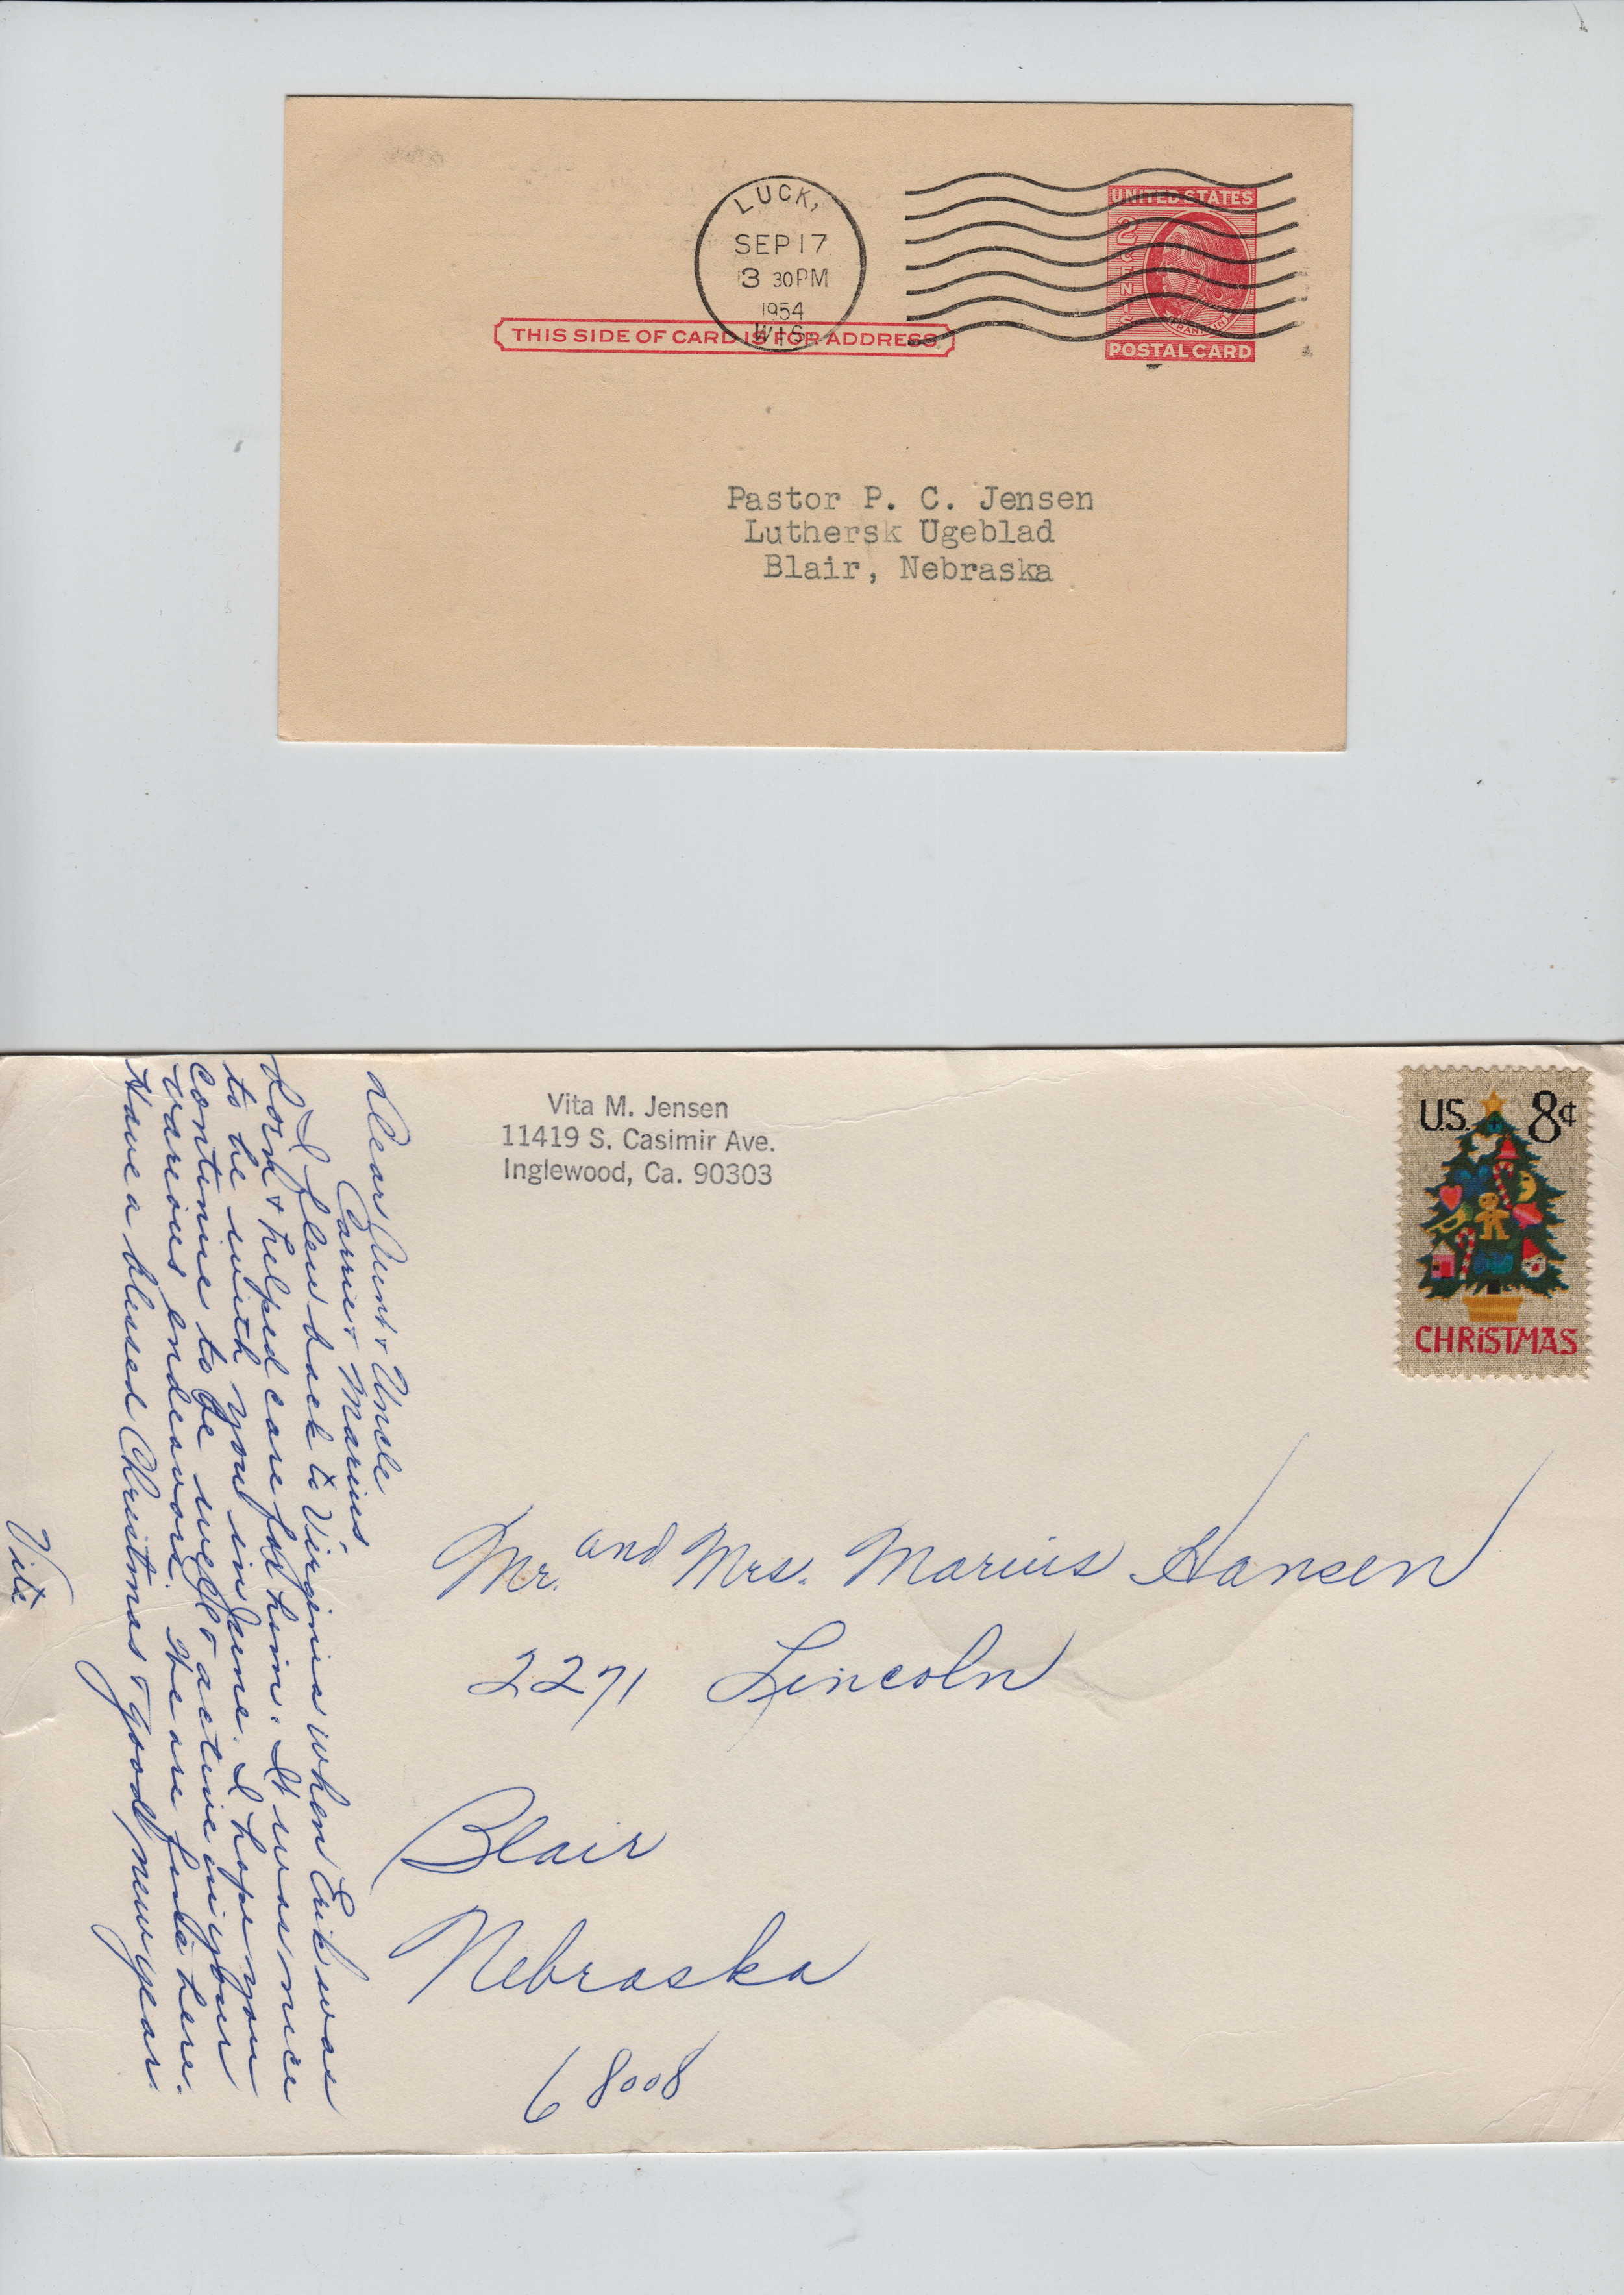 LUCK,
SEP 17
3 30 PM
1954
WIS.
UNITED STATES
2 CENTS
FRANKLIN
POSTAL CARD
THIS SIDE OF CARD IS FOR ADDRESS
Pastor P. C. Jensen
Luthersk Ugeblad
Blair, Nebraska
Vita M. Jensen
11419 S. Casimir Ave.
Inglewood, Ca. 90303
U.S. 8¢
CHRISTMAS
Mr. and Mrs. Marius Hansen
2271 Lincoln
Blair
Nebraska
68008
Dear Aunt & Uncle
Carrie & Marius
I flew back to Virginia when Erik was
born & helped care for him. It was nice
to be with you in June. I hope you
continue to be well & active in your
various endeavors. We are fine here.
Have a blessed Christmas & good new year.
Vita